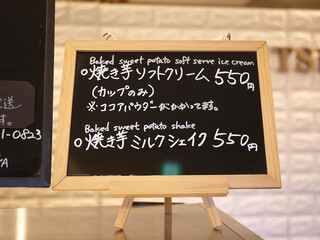 Baked sweet potato soft serve ice cream
○焼き芋ソフトクリーム 550円
(カップのみ)
※ココアパウダーがかかってます。
Baked sweet potato shake
○焼き芋ミルクシェイク 550円
送
す。
1-0823
YA
TS